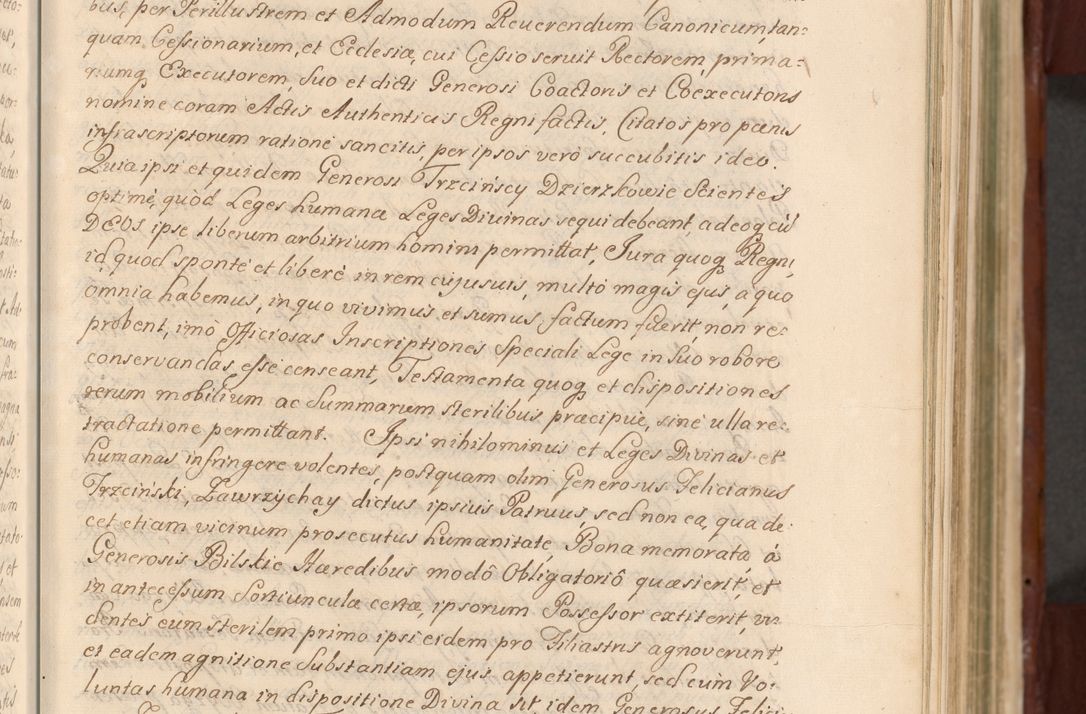 bus, per Perillustrem et Admodum Reuerendum Canonicum, tan=
quam Cessionarium, et Ecclesiæ, cui Cessio seruit Rectorem, prima=
riumq Executorem, suo et dicti Generosi Coactoris et Coexecutoris
nomine coram Actis Authenticis Regni factis, Citatos pro pænis
infrascriptorum ratione sancitis, per ipsos verò succubitis ideo.
Quia ipsi et quidem Generosi Trzcińscy Dzierzkowie Scientes
optimè, quòd Leges humanæ Leges Divinas sequi debeant, adeoq cũ
DEUS ipse liberum arbitrium homini permittat, Jura quoq Regni,
id quod spontè et liberè in rem cujusuis, multò magis ejus, a quo
omnia habemus, in quo vivimus et sumus factum fuerit non re=
probent, imò officiosas Inscriptiones Speciali Lege in suo robore
conservandas esse censeant, Testamenta quoq et dispositiones
rerum mobilium ac Summarum sterilibus præcipuè, sinè ulla re=
tractatione permittant. Ipsi nihilominus et Leges Divinas et
humanas infringere volentes, postquam olim Generosus Felicianus
Trzciński, Zawrzychay dictus ipsius Patruus, sed non ea, qua de=
cet etiam vicinum prosecutus humanitate Bona memorata à
Generosis Bilskie Hæredibus modô Obligatoriô quæsierit, et
in antecessum Sortiunculæ certæ, ipsorum Possessor extiterit, vi=
dentes eum sterilem primo ipsi eidem pro Filiastris agnoverunt,
et eadem agnitione Substantiam ejus appetierunt, sed cùm Vo=
luntas humana in dispositione Divina sit idem Generosus Felici=